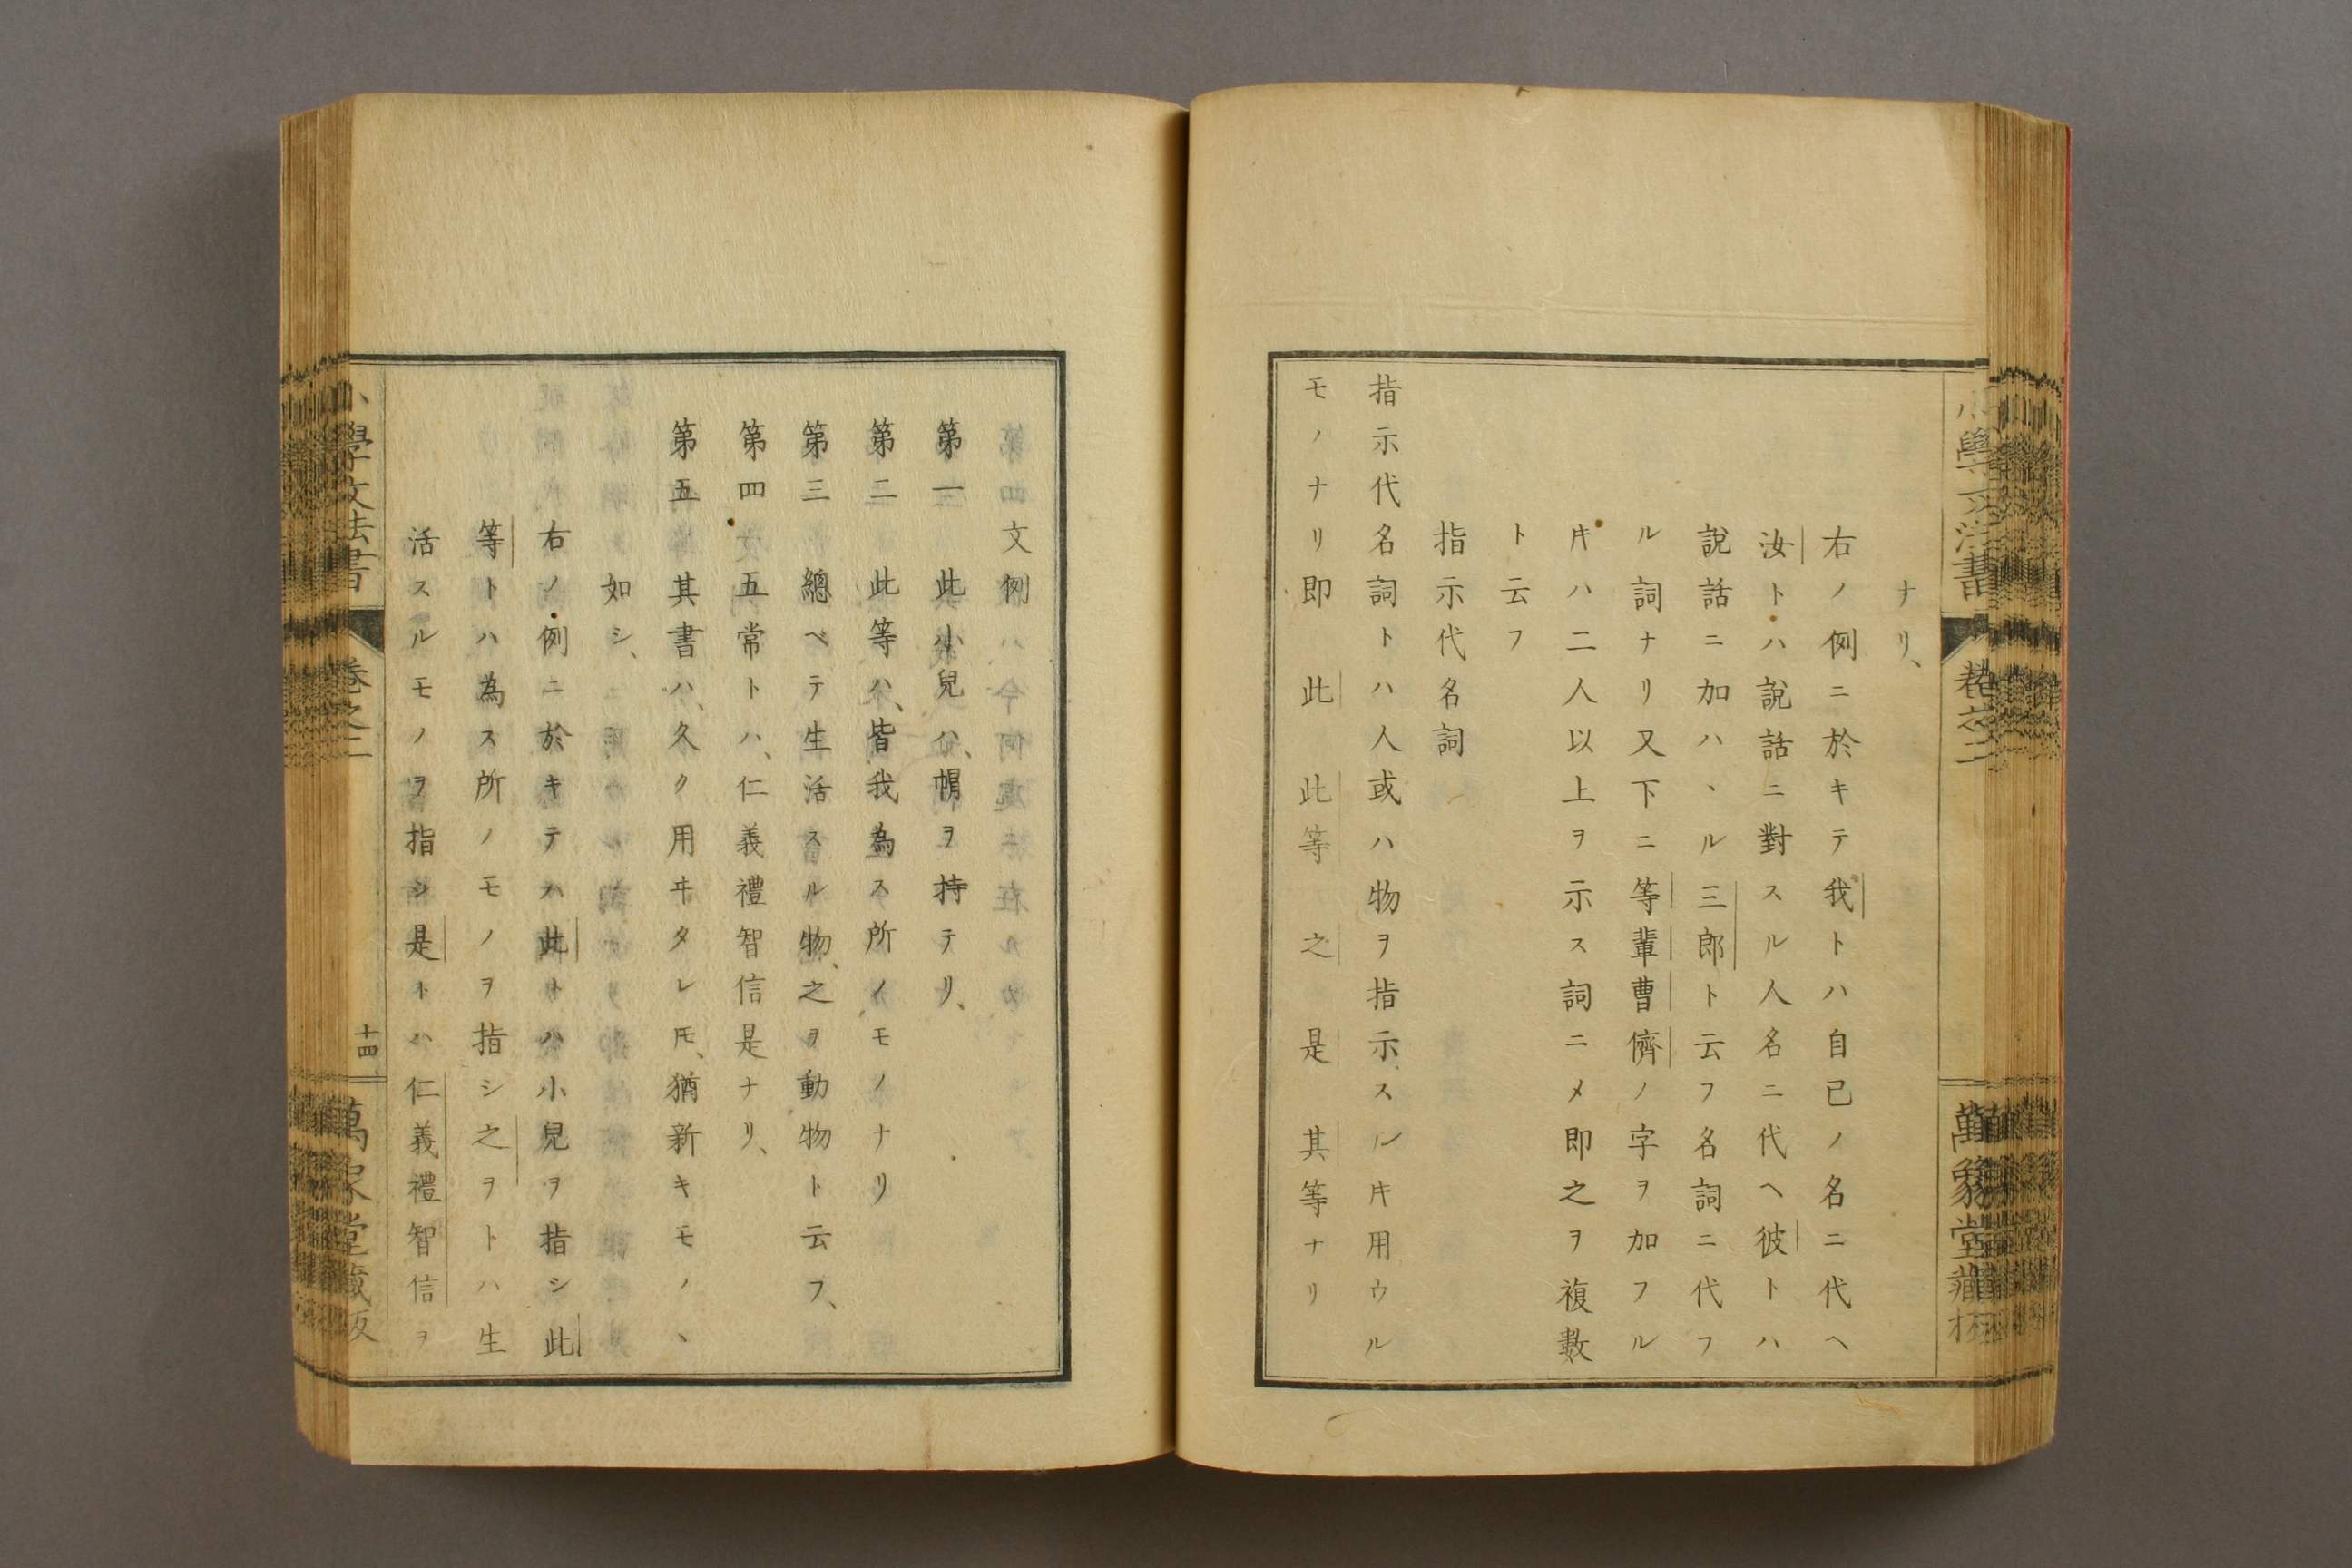 ナリ、
右ノ例ニ於キテ我トハ自已ノ名ニ代ヘ
汝トハ說話ニ對スル人名ニ代ヘ彼トハ
說話ニ加ハヽル三郎ト云フ名詞ニ代フ
ル詞ナリ又下ニ等輩曹儕ノ字ヲ加フル
キハ二人以上ヲ示ス詞ニメ即之ヲ複數
ト云フ
指示代名詞
指示代名詞トハ人或ハ物ヲ指示スルキ用ウル
モノナリ即 此 此等 之 是 其等ナリ
文例
第一 此小兒ハ、帽ヲ持テリ、
第二 此等ハ、皆我為ス所ノモノナリ
第三 總ベテ生活スル物、之ヲ動物ト云フ、
第四 五常トハ、仁義禮智信是ナリ、
第五 其書ハ、久ク用ヰタレ𪜈、猶新キモノヽ
如シ、
右ノ例ニ於キテハ此トハ小兒ヲ指シ此
等トハ為ス所ノモノヲ指シ之ヲトハ生
活スルモノヲ指シ是トハ仁義禮智信ヲ
小學文法書
卷之二
十四
萬象堂藏版